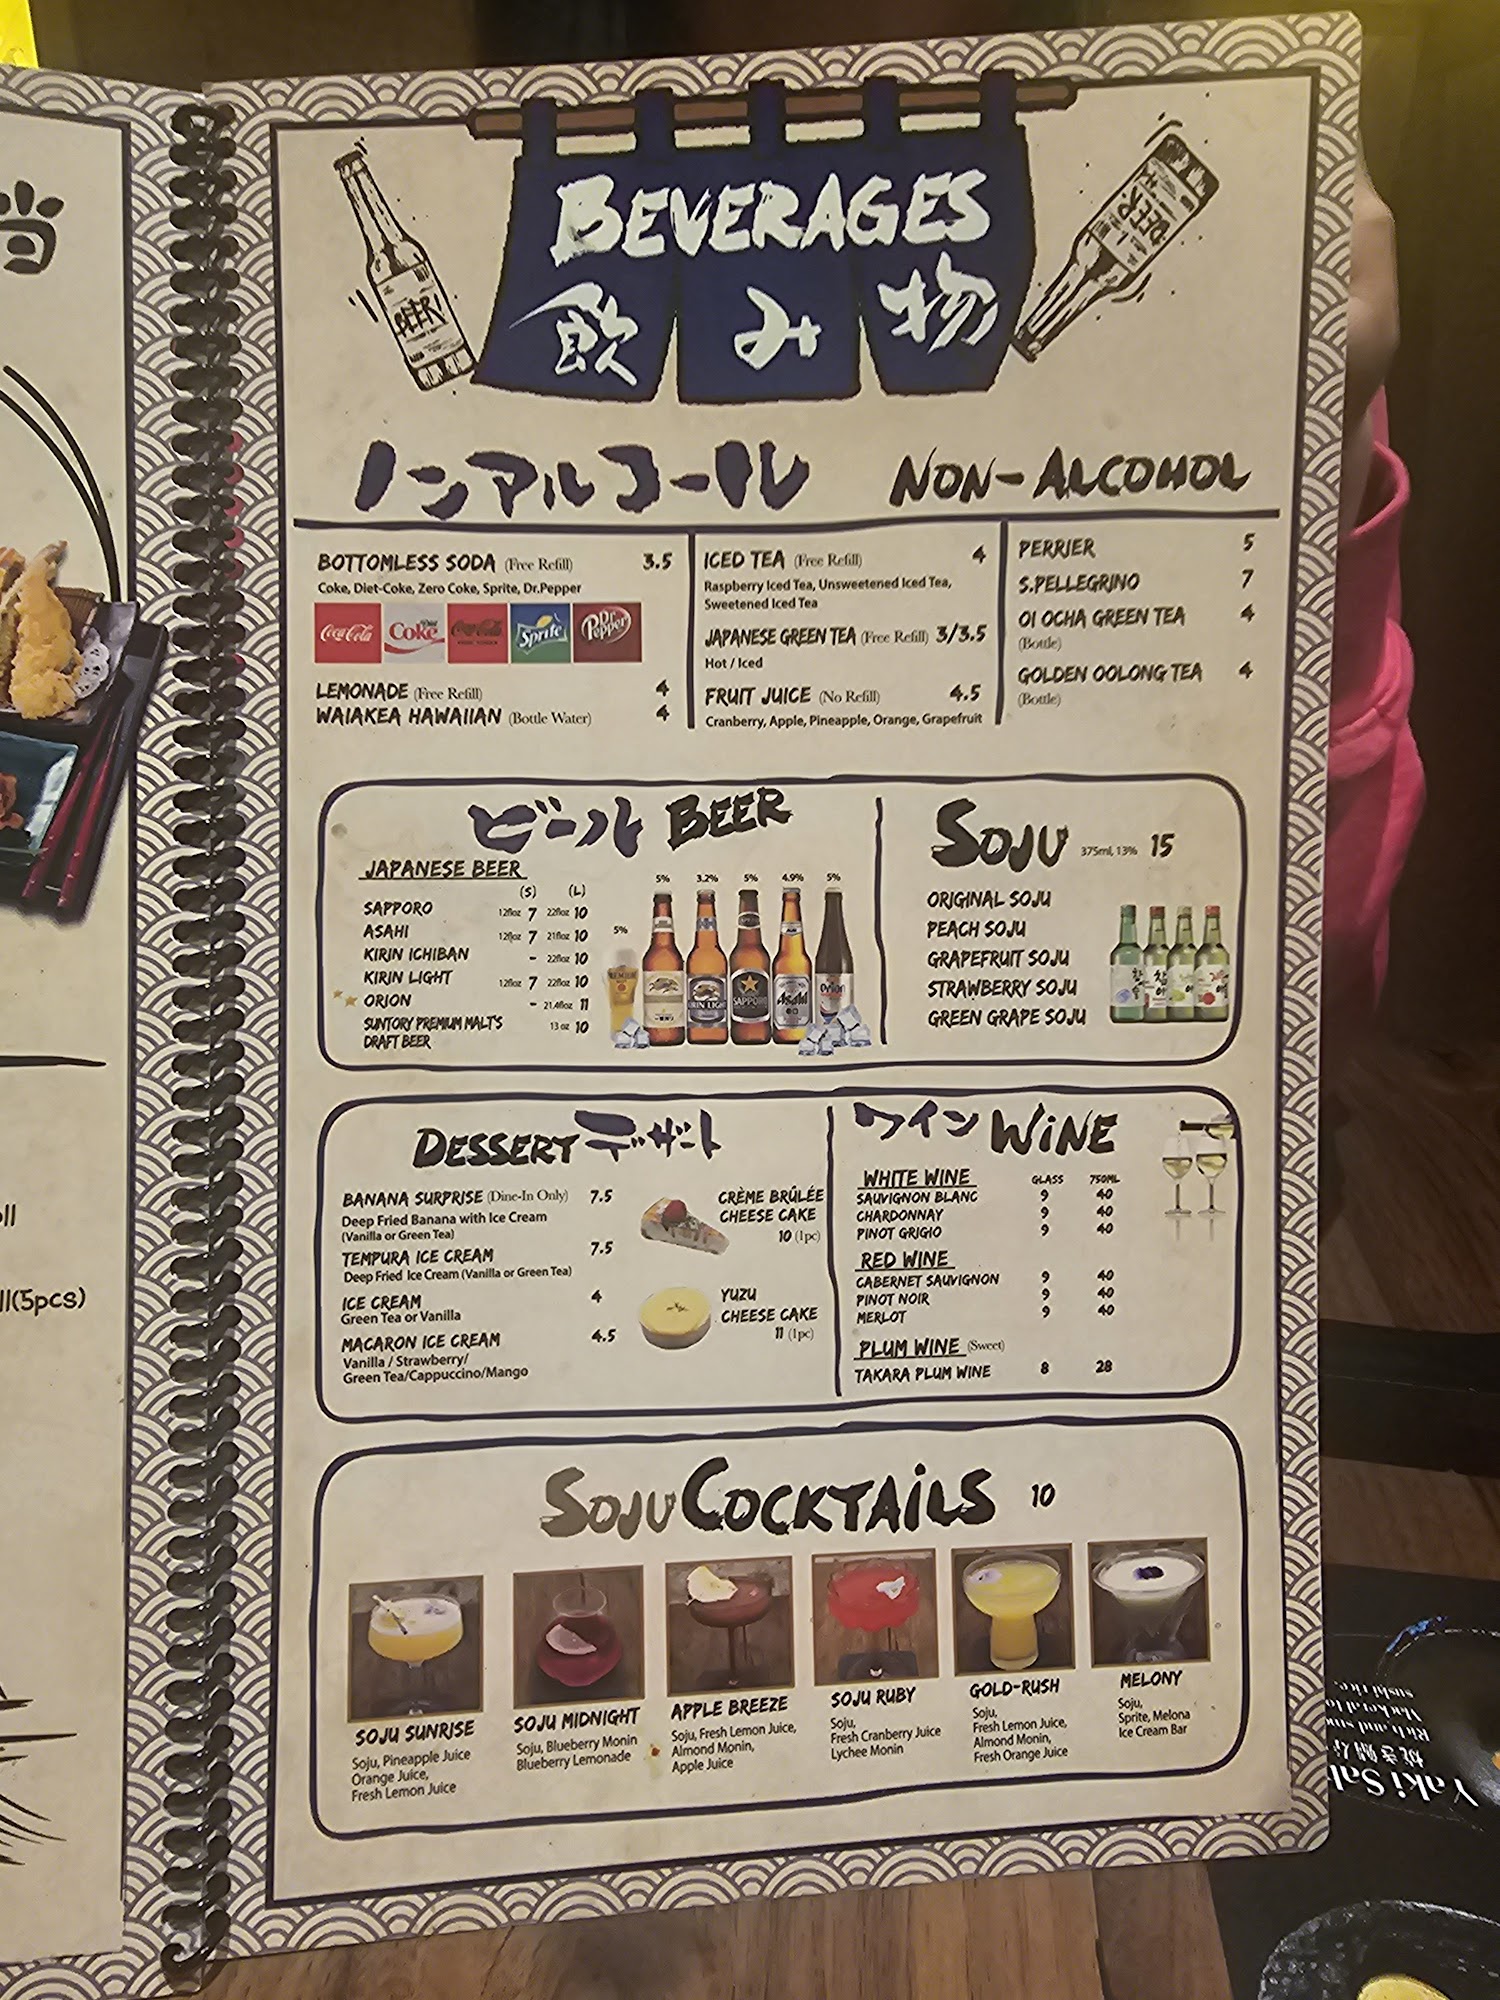 当
ll
ll(5pcs)
BEER!
BEER
BEVERAGES
飲み物
ノンアルコール NON-ALCOHOL
BOTTOMLESS SODA (Free Refill) 3.5
Coke, Diet-Coke, Zero Coke, Sprite, Dr.Pepper
Coca-Cola Diet Coke Coca-Cola Sprite Dr Pepper
LEMONADE (Free Refill) 4
WAIAKEA HAWAIIAN (Bottle Water) 4
ICED TEA (Free Refill) 4
Raspberry Iced Tea, Unsweetened Iced Tea,
Sweetened Iced Tea
JAPANESE GREEN TEA (Free Refill) 3/3.5
Hot / Iced
FRUIT JUICE (No Refill) 4.5
Cranberry, Apple, Pineapple, Orange, Grapefruit
PERRIER 5
S.PELLEGRINO 7
OI OCHA GREEN TEA 4
(Bottle)
GOLDEN OOLONG TEA 4
(Bottle)
ビール BEER
JAPANESE BEER
(S) (L)
SAPPORO 12floz 7 22floz 10
ASAHI 12floz 7 21floz 10
KIRIN ICHIBAN - 22floz 10
KIRIN LIGHT 12floz 7 22floz 10
ORION - 21.4floz 11
SUNTORY PREMIUM MALT'S 13 oz 10
DRAFT BEER
5% 5% 3.2% 5% 4.9% 5%
KIRIN LIGHT
SAPPORO
Asahi
Orion
SOJU 375ml, 13% 15
ORIGINAL SOJU
PEACH SOJU
GRAPEFRUIT SOJU
STRAWBERRY SOJU
GREEN GRAPE SOJU
DESSERT デザート
BANANA SURPRISE (Dine-In Only) 7.5
Deep Fried Banana with Ice Cream
(Vanilla or Green Tea)
TEMPURA ICE CREAM 7.5
Deep Fried Ice Cream (Vanilla or Green Tea)
ICE CREAM 4
Green Tea or Vanilla
MACARON ICE CREAM 4.5
Vanilla / Strawberry/
Green Tea/Cappuccino/Mango
CRÈME BRÛLÉE
CHEESE CAKE
10 (1pc)
YUZU
CHEESE CAKE
11 (1pc)
ワイン WINE
WHITE WINE GLASS 750ML
SAUVIGNON BLANC 9 40
CHARDONNAY 9 40
PINOT GRIGIO 9 40
RED WINE
CABERNET SAUVIGNON 9 40
PINOT NOIR 9 40
MERLOT 9 40
PLUM WINE (Sweet)
TAKARA PLUM WINE 8 28
SOJU COCKTAILS 10
SOJU SUNRISE
Soju, Pineapple Juice
Orange Juice,
Fresh Lemon Juice
SOJU MIDNIGHT
Soju, Blueberry Monin
Blueberry Lemonade
APPLE BREEZE
Soju, Fresh Lemon Juice,
Almond Monin,
Apple Juice
SOJU RUBY
Soju,
Fresh Cranberry Juice
Lychee Monin
GOLD-RUSH
Soju,
Fresh Lemon Juice,
Almond Monin,
Fresh Orange Juice
MELONY
Soju,
Sprite, Melona
Ice Cream Bar
Yaki Sab
Rich and smo
sushi rice.